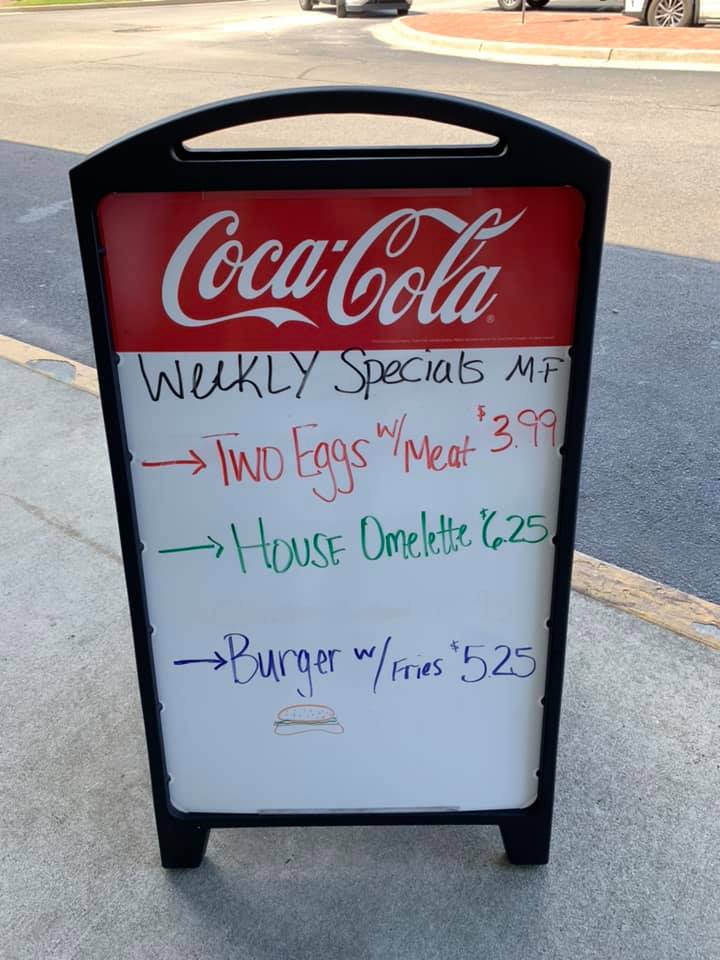 Coca-Cola
WEEKLY Specials M-F
→ Two Eggs w/ Meat $3.99
→ HOUSE Omelette $6.25
→ Burger w/ Fries $5.25